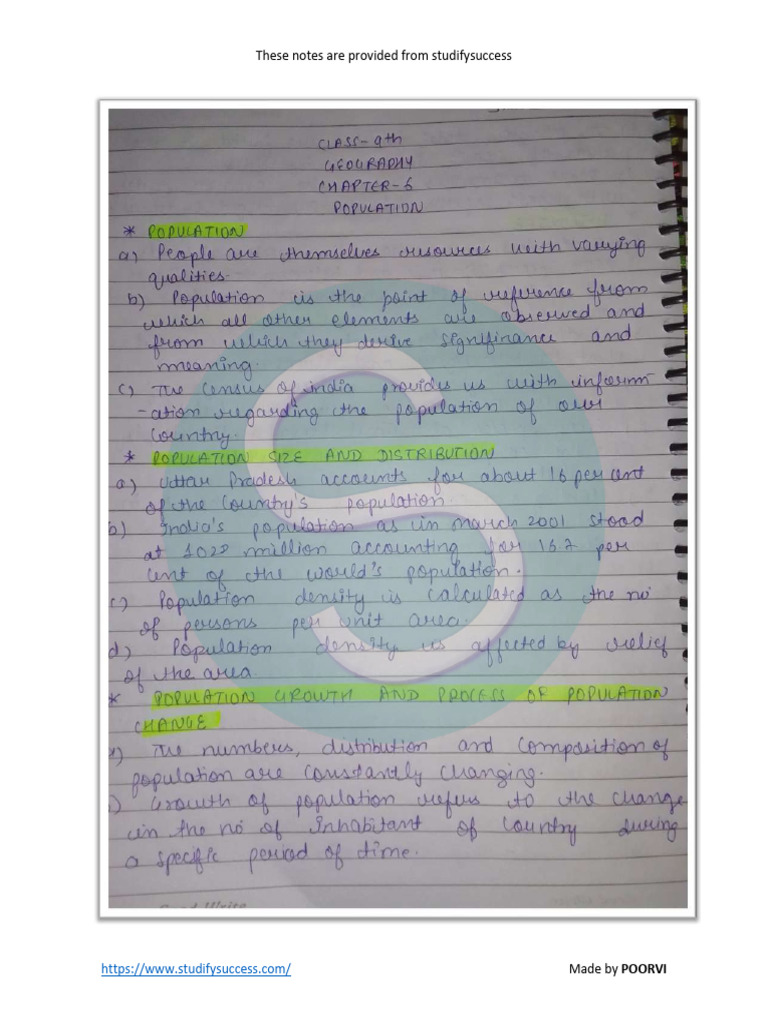 These notes are provided from studifysuccess
CLASS-9th
GEOGRAPHY
CHAPTER-6
POPULATION
* POPULATION
a) People are themselves resources with varying
qualities.
b) Population is the point of reference from
which all other elements are observed and
from which they derive signifinance and
meaning.
c) The Census of india provides us with inform
-ation regarding the population of our
Country.
* POPULATION SIZE AND DISTRIBUTION
a) Uttar Pradesh accounts for about 16 per cent
of the Country's population.
b) India's population as in march 2001 stood
at 1028 million accounting for 16.7 per
cent of the world's population.
c) Population density is calculated as the no
of persons per unit area.
d) Population density is affected by relief
of the area.
* POPULATION GROWTH AND PROCESS OF POPULATION
CHANGE
a) The numbers, distribution and Composition of
population are constantly changing.
) Growth of population refers to the change
in the no of Inhabitant of Country during
a specific period of time.
https://www.studifysuccess.com/
Made by POORVI